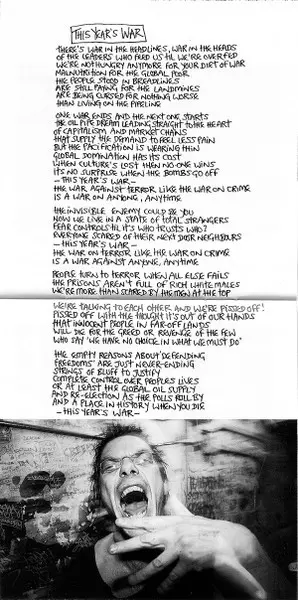 THIS YEAR'S WAR
THERE'S WAR IN THE HEADLINES, WAR IN THE HEADS
OF THE LEADERS WHO FEED US TIL WE'RE OVERFED
WE'RE NOT HUNGRY ANYMORE FOR YOUR DIET OF WAR
MALNUTRITION FOR THE GLOBAL POOR
THE PEOPLE STOOD IN BREADLINES
ARE STILL PAYING FOR THE LANDMINES
ARE BEING CURSED FOR NOTHING WORSE
THAN LIVING ON THE PIPELINE
ONE WAR ENDS AND THE NEXT ONE STARTS
THE OIL PIPE DREAM LEADING STRAIGHT TO THE HEART
OF CAPITALISM AND MARKET CHAINS
THAT SUPPLY THE DEMAND TO FEEL LESS PAIN
BUT THE PACIFICATION IS WEARING THIN
GLOBAL DOMINATION HAS ITS COST
WHEN CULTURE'S LOST THEN NO ONE WINS
IT'S NO SURPRISE WHEN THE BOMBS GO OFF
- THIS YEAR'S WAR -
THE WAR AGAINST TERROR LIKE THE WAR ON CRIME
IS A WAR ON ANYONE, ANYTIME
THE INVISIBLE ENEMY COULD BE YOU
NOW WE LIVE IN A STATE OF TOTAL STRANGERS
FEAR CONTROLS TIL IT'S WHO TRUSTS WHO?
EVERYONE SCARED OF THEIR NEXT DOOR NEIGHBOURS
- THIS YEAR'S WAR -
THE WAR ON TERROR LIKE THE WAR ON CRIME
IS A WAR AGAINST ANYONE, ANYTIME
PEOPLE TURN TO TERROR WHEN ALL ELSE FAILS
THE PRISONS AREN'T FULL OF RICH WHITE MALES
WE'RE MORE THAN SCARED BY THE MEN AT THE TOP
WE'RE TALKING TO EACH OTHER AND WE'RE PISSED OFF!
PISSED OFF WITH THE THOUGHT IT'S OUT OF OUR HANDS
THAT INNOCENT PEOPLE IN FAR-OFF LANDS
WILL DIE FOR THE GREED OR REVENGE OF THE FEW
WHO SAY 'WE HAVE NO CHOICE IN WHAT WE MUST DO'
THE EMPTY REASONS ABOUT 'DEFENDING
FREEDOMS' ARE JUST NEVER-ENDING
STRINGS OF BLUFF TO JUSTIFY
COMPLETE CONTROL OVER PEOPLES LIVES
OR AT LEAST THE GLOBAL OIL SUPPLY
AND RE-ELECTION AS THE POLLS ROLL BY
AND A PLACE IN HISTORY WHEN YOU DIE
- THIS YEAR'S WAR -